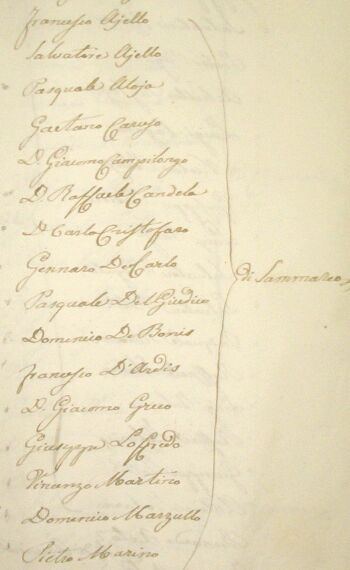 Francesco Ajello
Salvatore Ajello
Pasquale Aloja
Gaetano Caruso
D. Giacomo Campilongo
D. Raffaele Candela
D. Carlo Cristofaro
Gennaro De Carlo
di Sammarco
Pasquale Del Giudice
Domenico De Bonis
Francesco D'Ardis
D. Giacomo Greco
Giuseppe Lo Fredo
Vincenzo Martino
Domenico Marzullo
Pietro Marino